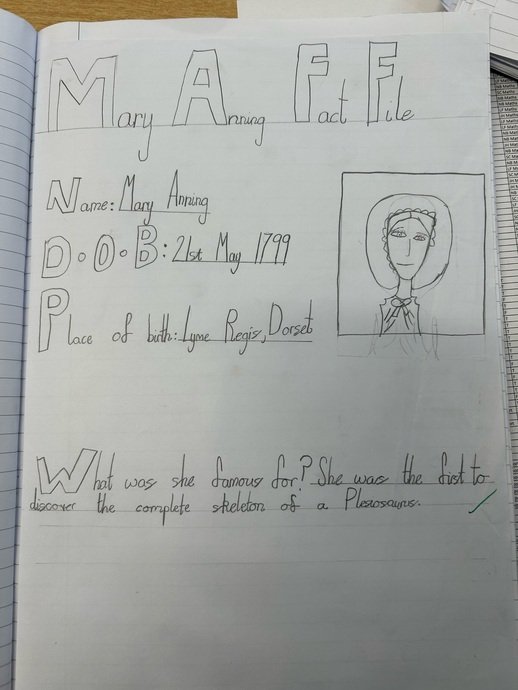 Mary Anning Fact File
Name: Mary Anning
D.O.B: 21st May 1799
Place of birth: Lyme Regis, Dorset
What was she famous for? She was the first to
discover the complete skeleton of a Plesiosaurus.